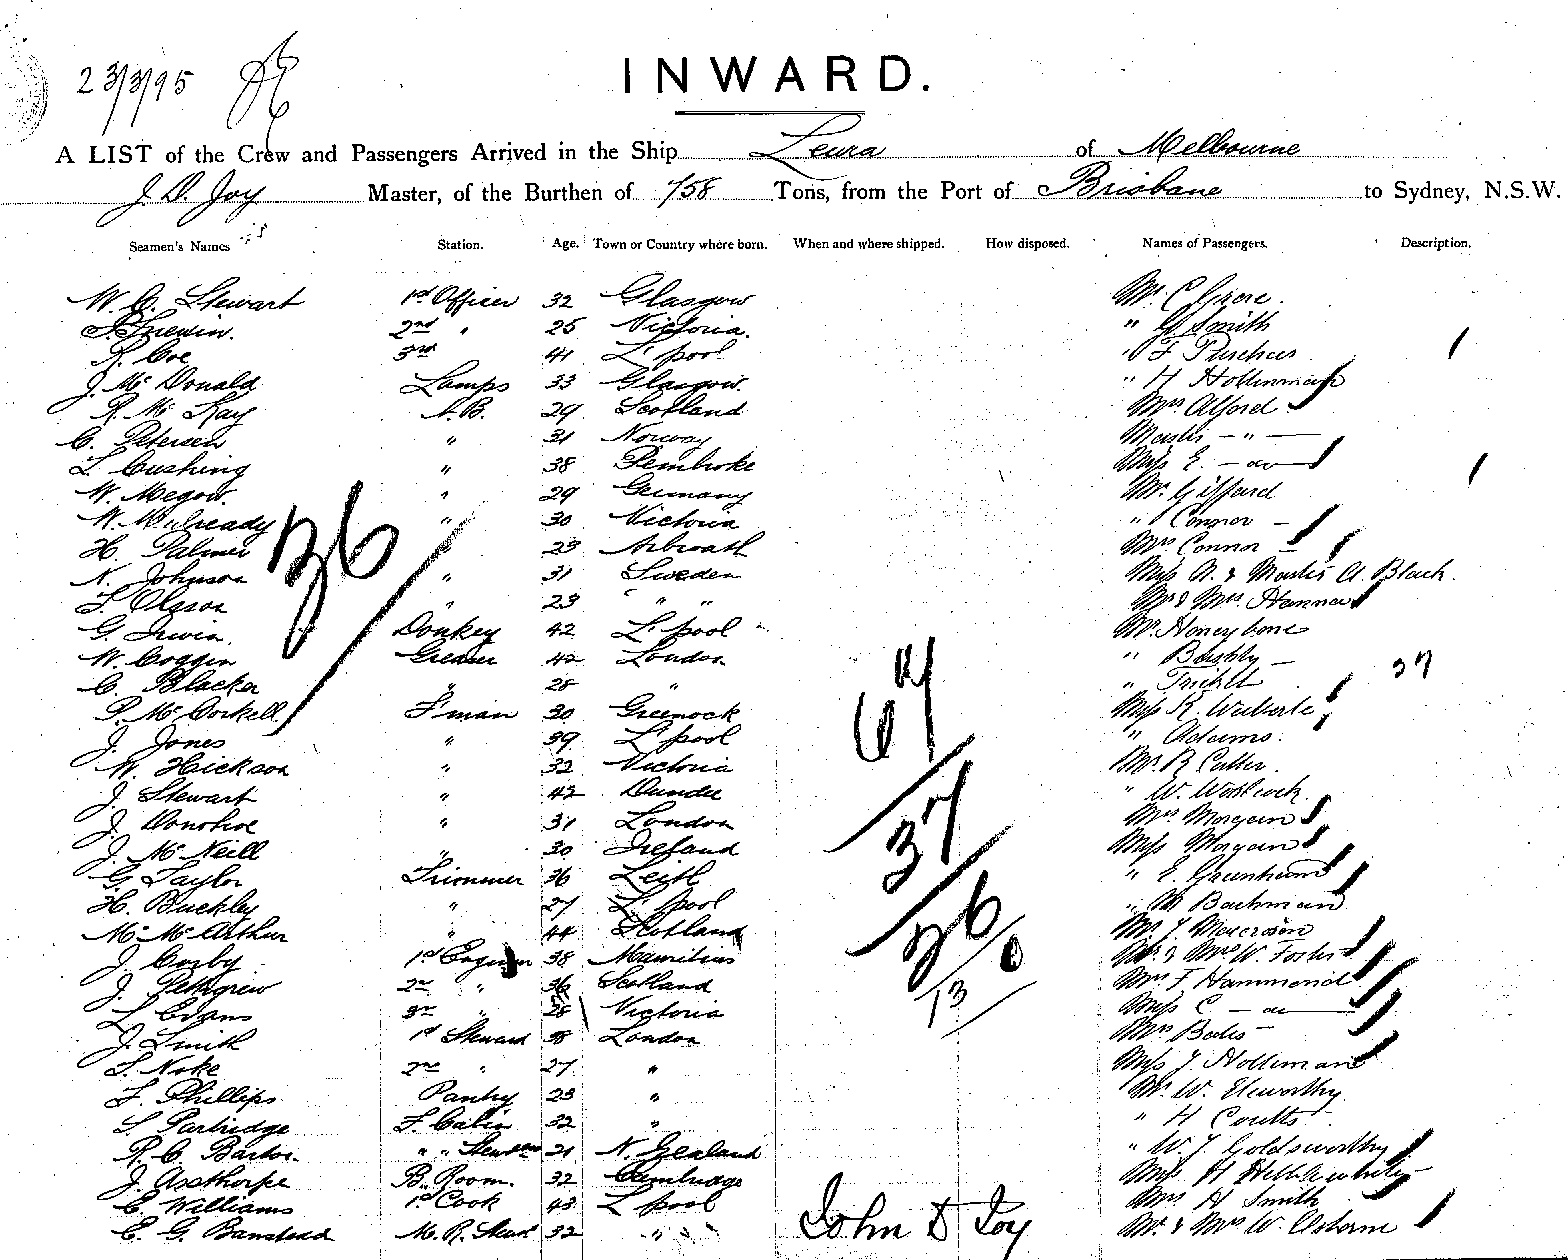 23/3/95
INWARD.
A LIST of the Crew and Passengers Arrived in the Ship Leura of Melbourne
J. D. Joy Master, of the Burthen of 758 Tons, from the Port of Brisbane to Sydney, N.S.W.
Seamen's Names Station. Age. Town or Country where born. When and where shipped. How disposed. Names of Passengers. Description.
W. C. Stewart 1st Officer 32 Glasgow Mr. C
2nd " 25 Victoria. " G Smith
R. Coe 3rd 41 L'pool " F
J. Mc Donald Lamps 33 Glasgow. " H
R. Mc Kay A.B. 29 Scotland Mrs Alford
C. Petersen " 31 Norway Master - " -
L. Cushing " 38 Pembroke Miss E. - do -
W. Megow. " 29 Germany Mr. Gifford
W. McCready " 30 Victoria " Connor -
H. Palmer " 23 Arbroath Mrs Connor -
N. Johnson " 31 Sweden Miss A. & Master A. Black.
Olsson " 23 " " Mr & Mrs. Hanna
G. Irwin. Donkey 42 L'pool Mr. Honeybone
W. Coggin Greaser 42 London "
C. Blacker " 28 " "
P. Mc Corkell F'man 30 Greenock Miss R.
J. Jones " 39 L'pool " Adams.
W. Hickson " 32 Victoria Mr. R
J. Stewart " 42 Dundee " W.
J. Donohoe " 31 London Mrs Morgan
J. Mc Neill " 30 Ireland Miss Morgan
G. Taylor Trimmer 36 Leith " E.
H. Buckley " 27 L'pool " Bachman
M. Mc Arthur " 44 Scotland Mr.
J. Corby 1st Engineer 38 Mauritius Mr. & Mrs W. Foster
J. Pettigrew 2nd " 36 Scotland Mrs F Hammond
L Evans 3rd " 28 Victoria Miss C - do -
J. Smith 1st Steward 38 London Mrs Bates
Noke 2nd " 27 " Miss J. Holliman
Phillips Pantry 23 " Mr W. Elworthy
S Partridge F. Cabin 32 " " H Coutts
R. C. " " 21 N. Zealand " W. J. Goldsworthy
J. Assthorpe B. Room. 32 Cambridge Miss H
C. Williams 1st Cook 43 L'pool Mrs H Smith
E. G. Banstead M. R. Stew 32 " " Mr. & Mrs W. Osborne
36
64
37
37
36
13
John D Joy